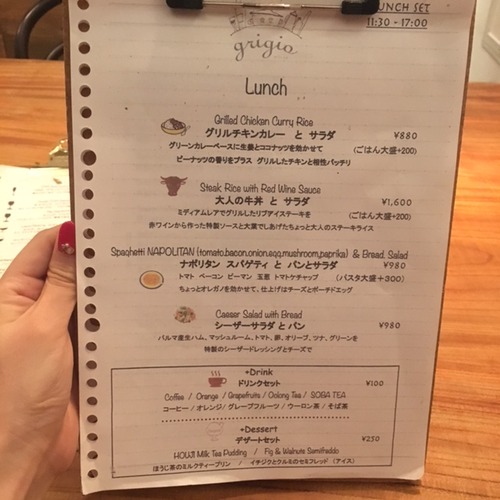 LUNCH SET
11:30 - 17:00
grigio
Lunch
Grilled Chicken Curry Rice
グリルチキンカレー と サラダ ¥880
グリーンカレーベースに生姜とココナッツを効かせて (ごはん大盛+200)
ピーナッツの香りをプラス グリルしたチキンと相性バッチリ
Steak Rice with Red Wine Sauce
大人の牛丼 と サラダ ¥1,600
ミディアムレアでグリルしたリブアイステーキを (ごはん大盛+200)
赤ワインから作った特製ソースと大葉でしあげたちょっと大人のステーキライス
Spaghetti NAPOLITAN (tomato,bacon,onion,egg,mushroom,paprika) & Bread, Salad
ナポリタン スパゲティ と パンとサラダ ¥980
トマト ベーコン ピーマン 玉葱 トマトケチャップ (パスタ大盛+300)
ちょっとオレガノを効かせて、仕上げはチーズとポーチドエッグ
Caeser Salad with Bread
シーザーサラダ と パン ¥980
パルマ産生ハム、マッシュルーム、トマト、卵、オリーブ、ツナ、グリーンを
特製のシーザードレッシングとチーズで
+Drink
ドリンクセット ¥100
Coffee / Orange / Grapefruits / Oolong Tea / SOBA TEA
コーヒー / オレンジ / グレープフルーツ / ウーロン茶 / そば茶
+Dessert
デザートセット ¥250
HOUJI Milk Tea Pudding / Fig & Walnuts Semifreddo
ほうじ茶のミルクティープリン / イチジクとクルミのセミフレッド (アイス)